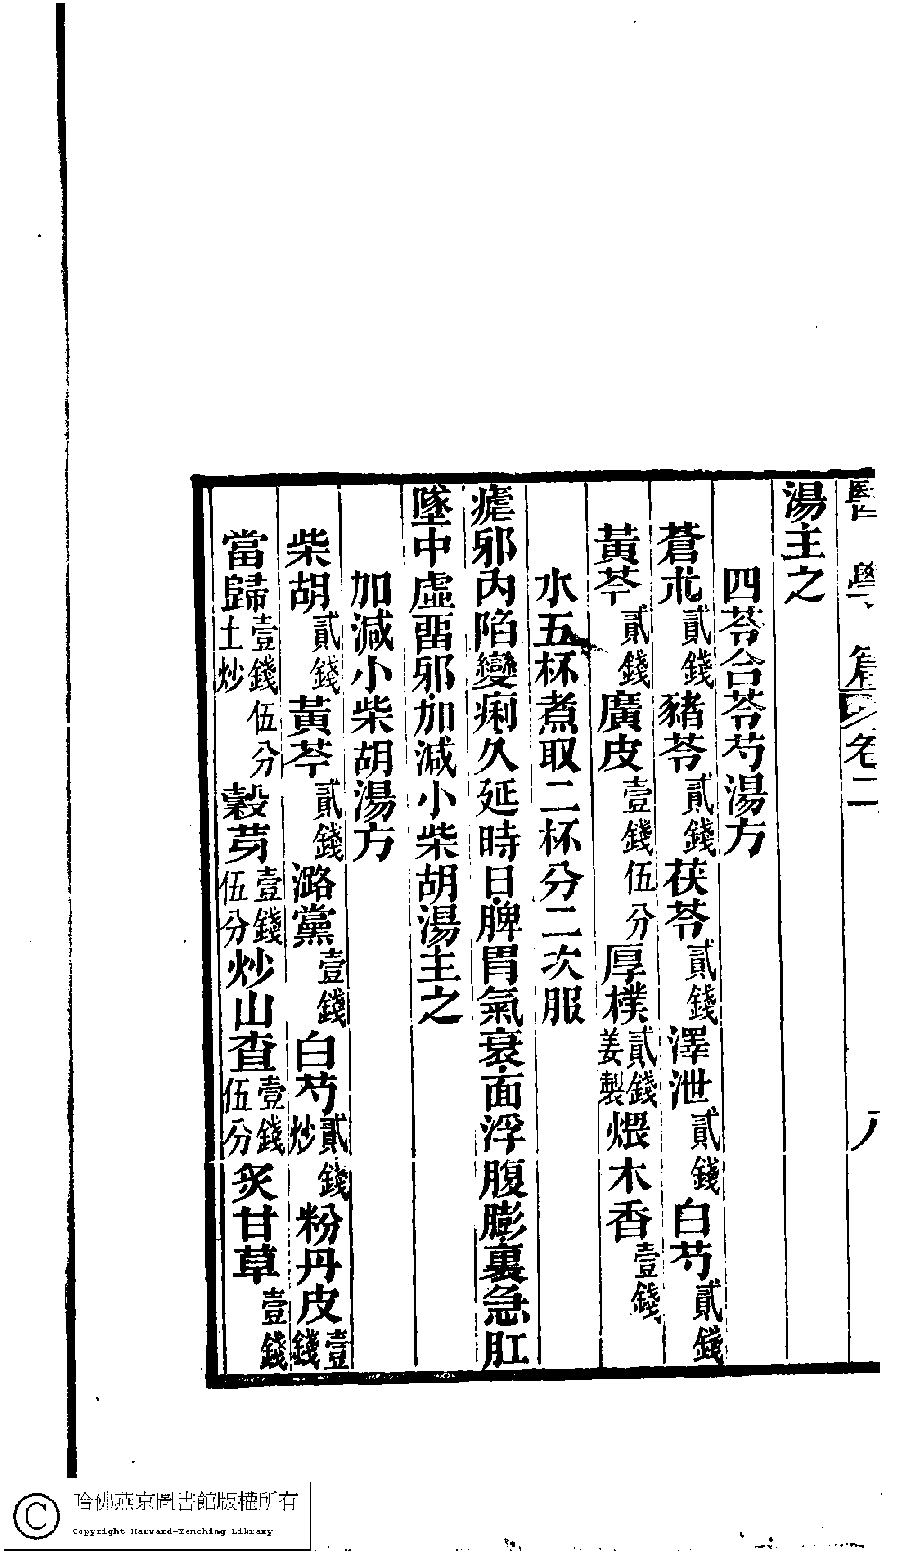 醫學篇 卷二 八
湯主之
四苓合芩芍湯方
蒼朮貳錢豬苓貳錢茯苓貳錢澤泄貳錢白芍貳錢
黃芩貳錢廣皮壹錢伍分厚樸貳錢姜製煨木香壹錢
水五杯煮取二杯分二次服
瘧邪内陷變痢久延時日脾胃氣衰面浮腹膨裏急肛
墜中虛畱邪加減小柴胡湯主之
加減小柴胡湯方
柴胡貳錢黃芩貳錢潞黨壹錢白芍貳錢炒粉丹皮壹錢
當歸壹錢伍分土炒穀芽壹錢伍分炒山查壹錢伍分炙甘草壹錢
哈佛燕京圖書館版權所有
Copyright Harvard-Yenching Library